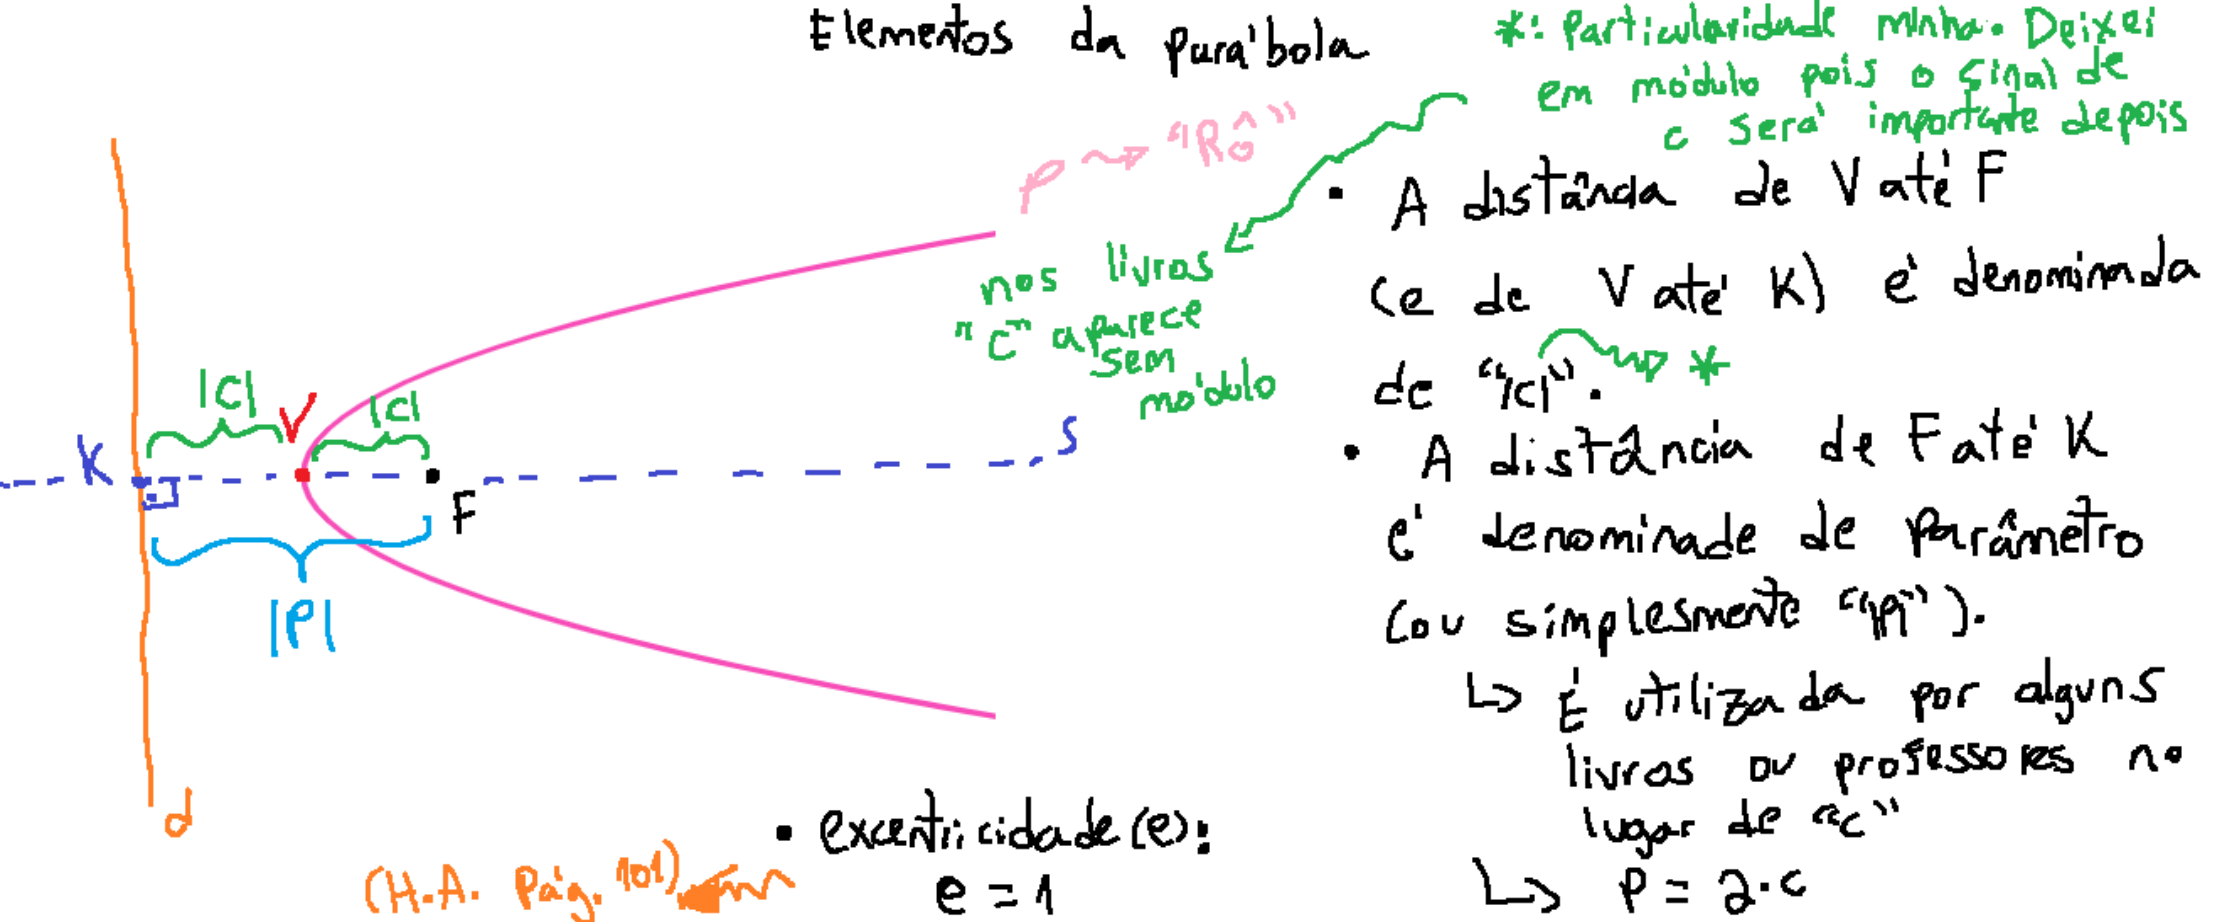 Elementos da pará'bola
*: Particularidade minha. Deixei
em módulo pois o sinal de
c será importante depois
ρ ~> "Rô"
nos livros
"c" aparece
sem
módulo
• A distância de V até F
(e de V até K) é denominada
de "|c|". ~> *
• A distância de F até K
é denominade de parâmetro
(ou simplesmente "|P|").
↳ É utilizada por alguns
livros ou professores no
lugar de "c"
↳ P = 2·c
|C| V |C|
K
S
F
|P|
d
• excentricidade (e):
e = 1
(H.A. Pág. 101)